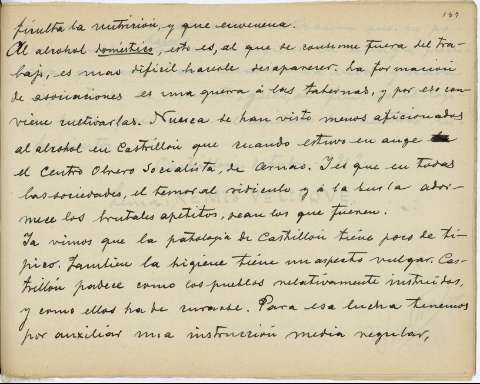 137
ficulta la nutrición, y que envenena.
Al alcohol doméstico, esto es, al que se consume fuera del tra-
bajo, es mas difícil hacerle desaparecer. La formación
de asociaciones es una guerra á las tabernas, y por eso con-
viene cultivarlas. Nunca se han visto menos aficionados
al alcohol en Castrillón que cuando estuvo en auge
el Centro Obrero Socialista, de Arnao. Y es que en todas
las sociedades, el temor al ridículo y á la burla ador-
mece los brutales apetitos, sean los que fueren.
Ya vimos que la patología de Castrillón tiene poco de tí-
pico. También la higiene tiene un aspecto vulgar. Cas-
trillón padece como los pueblos relativamente instruidos,
y como ellos ha de curarse. Para esa lucha tenemos
por auxiliar una instrucción media regular,